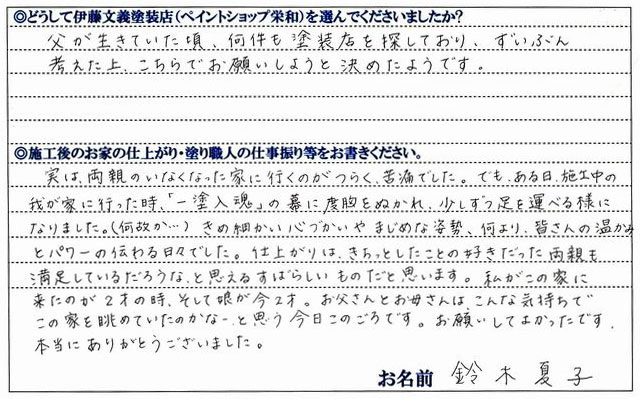 ◎どうして伊藤文義塗装店（ペイントショップ栄和）を選んでくださいましたか？
父が生きていた頃、何件も塗装店を探しており、ずいぶん
考えた上、こちらでお願いしようと決めたようです。
◎施工後のお家の仕上がり・塗り職人の仕事振り等をお書きください。
実は、両親のいなくなった家に行くのがつらく、苦痛でした。でも、ある日、施工中の
我が家に行った時、「一塗入魂」の幕に度胸をぬかれ、少しずつ足を運べる様に
なりました。（何故か…）きめ細かい心づかいやまじめな姿勢、何より、皆さんの温かみ
とパワーの伝わる日々でした。仕上がりは、きちっとしたことの好きだった両親も
満足しているだろうな、と思えるすばらしいものだと思います。私がこの家に
来たのが2才の時、そして娘が今2才。お父さんとお母さんは、こんな気持ちで
この家を眺めていたのかな－、と思う今日このごろです。お願いしてよかったです。
本当にありがとうございました。
お名前 鈴木夏子